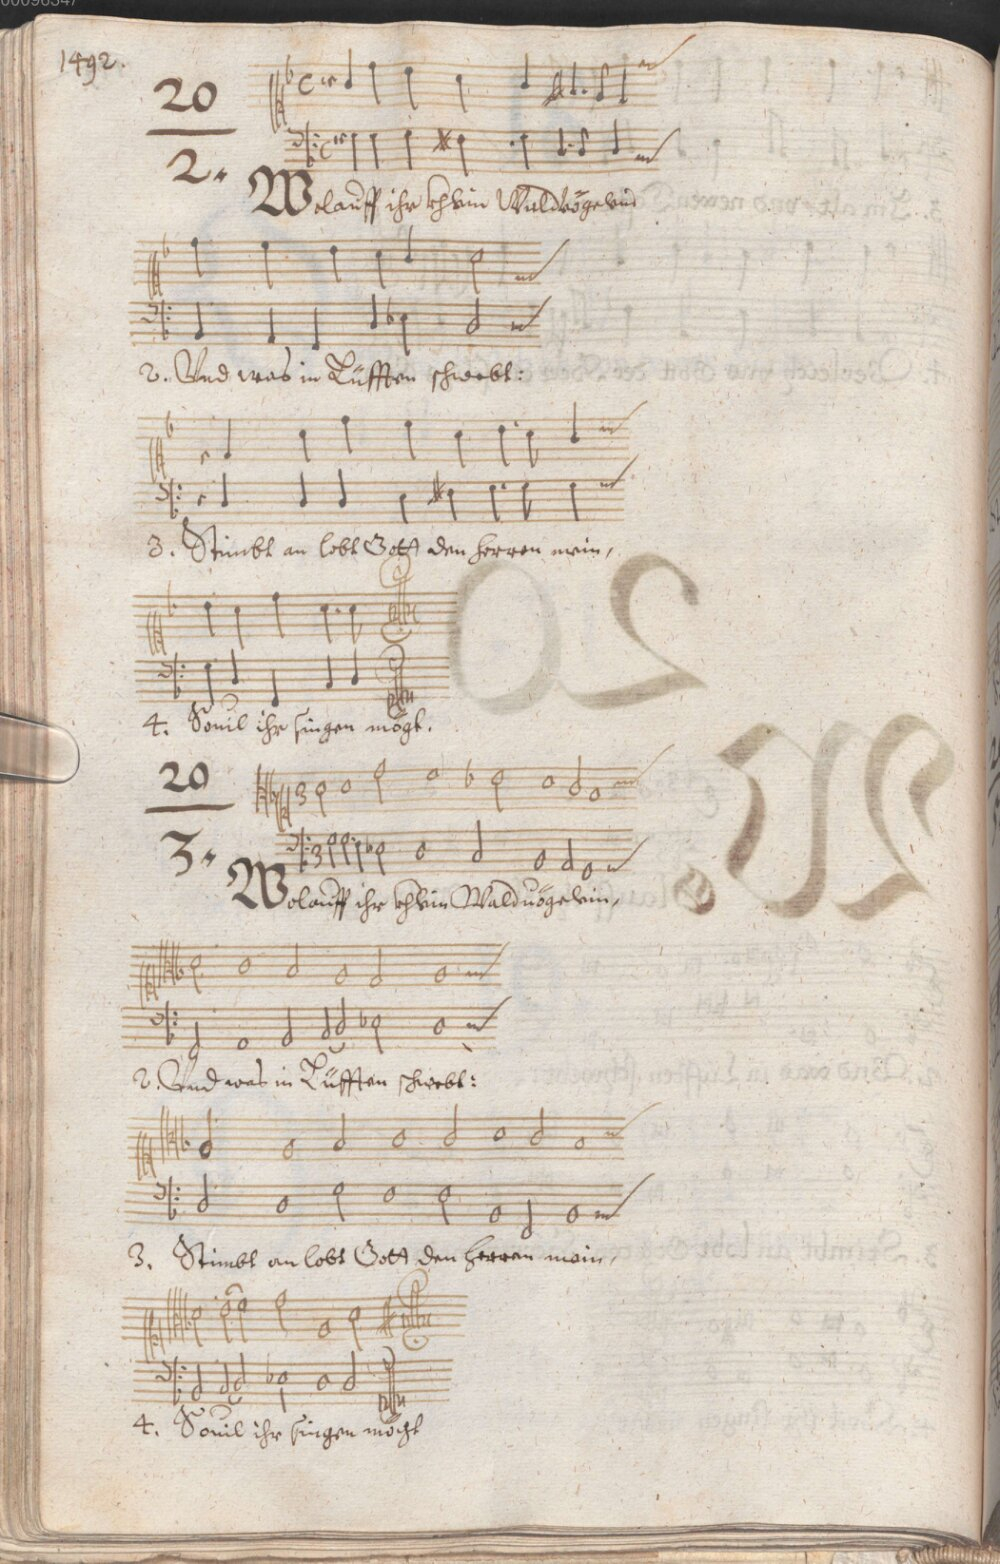 1492.
20
2.
Wolauff ihr khlein Waldvögelein
2. Vnd was in Lüfften schwebt:
3. Stimbt an lobt Gott den Herren mein,
4. Souil ihr singen mögt.
20
3.
Wolauff ihr khlein Waldvögelein,
2. Vnd was in Lüfften schwebt:
3. Stimbt an lobt Gott den Herren mein,
4. Souil ihr singen mögt